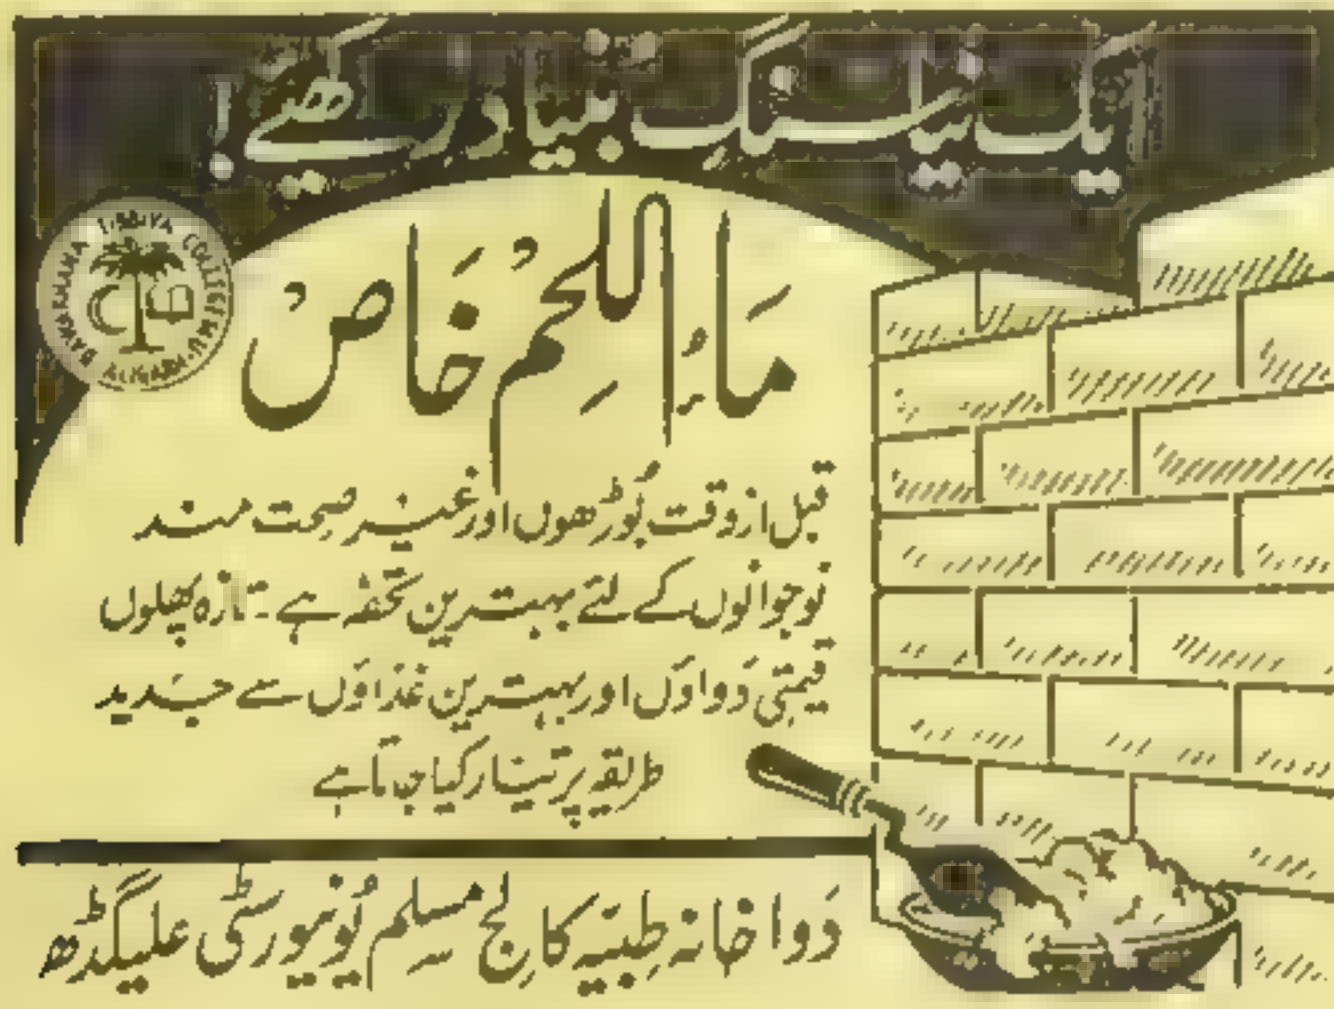 ایک نیا سنگِ بنیاد رکھئے!
DAWAKHANA TIBBIYA COLLEGE M.U. ALIGARH
مَاءُ اللحِمْ خَاصْ
قبل از وقت بُوڑھوں اور غیر صحت مند
نوجوانوں کے لئے بہترین تحفہ ہے۔ تازہ پھلوں
قیمتی دَواؤں اور بہترین غذاؤں سے جدید
طریقہ پر تیار کیا جاتا ہے
دَوا خانہ طِبیّہ کالج مُسلم یُونیورسٹی علیگڈھ